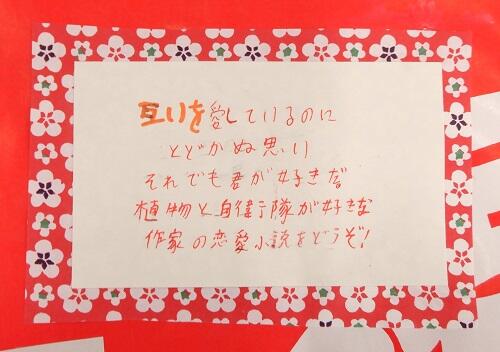 互いを愛しているのに
とどかぬ思い
それでも君が好きだ
植物と自衛隊が好きな
作家の恋愛小説をどうぞ!